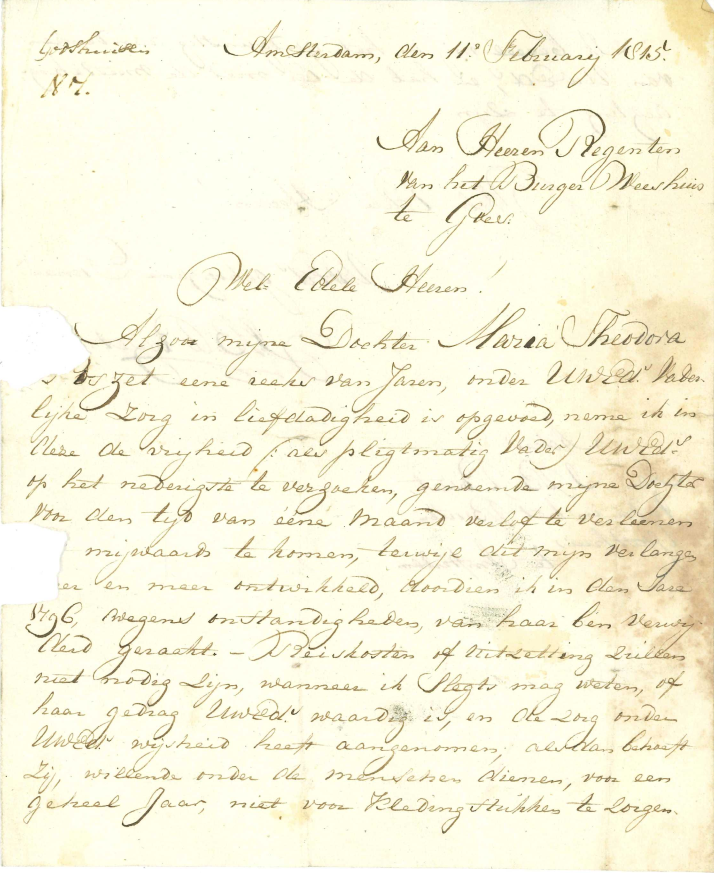 Godshuisen
N° 7.
Amsterdam, den 11e Februarij 1815.
Aan Heeren Regenten
van het Burger Weeshuis
te Goes.
Wel Edele Heeren!
Alzoo mijne Dochter Maria Theodora
zet eene reeks van Jaren, onder UWEds. Vader-
lijke zorg in liefdadigheid is opgevoed, neme ik in
deze de vrijheid (: als pligtmatig Vader) UWEds.
op het nederigste te verzoeken, genoemde mijne Dochter
voor den tijd van eene maand verlof te verleenen
mijwaards te komen, terwijl dit mijn verlangen
eer en meer ontwikkeld, doordien ik in den Jare
1796, wegens omstandigheden, van haar ben verwij-
derd geraakt. – Reiskosten of Uitzetting zullen
niet nodig zijn, wanneer ik Slegts mag weten, of
haar gedrag UWEds. waardig is, en de zorg onder
UWEds. wijsheid heeft aangenomen, als dan behoeft
Zij, willende onder de menschen dienen, voor een
geheel Jaar, niet voor Kledingstukken te zorgen.